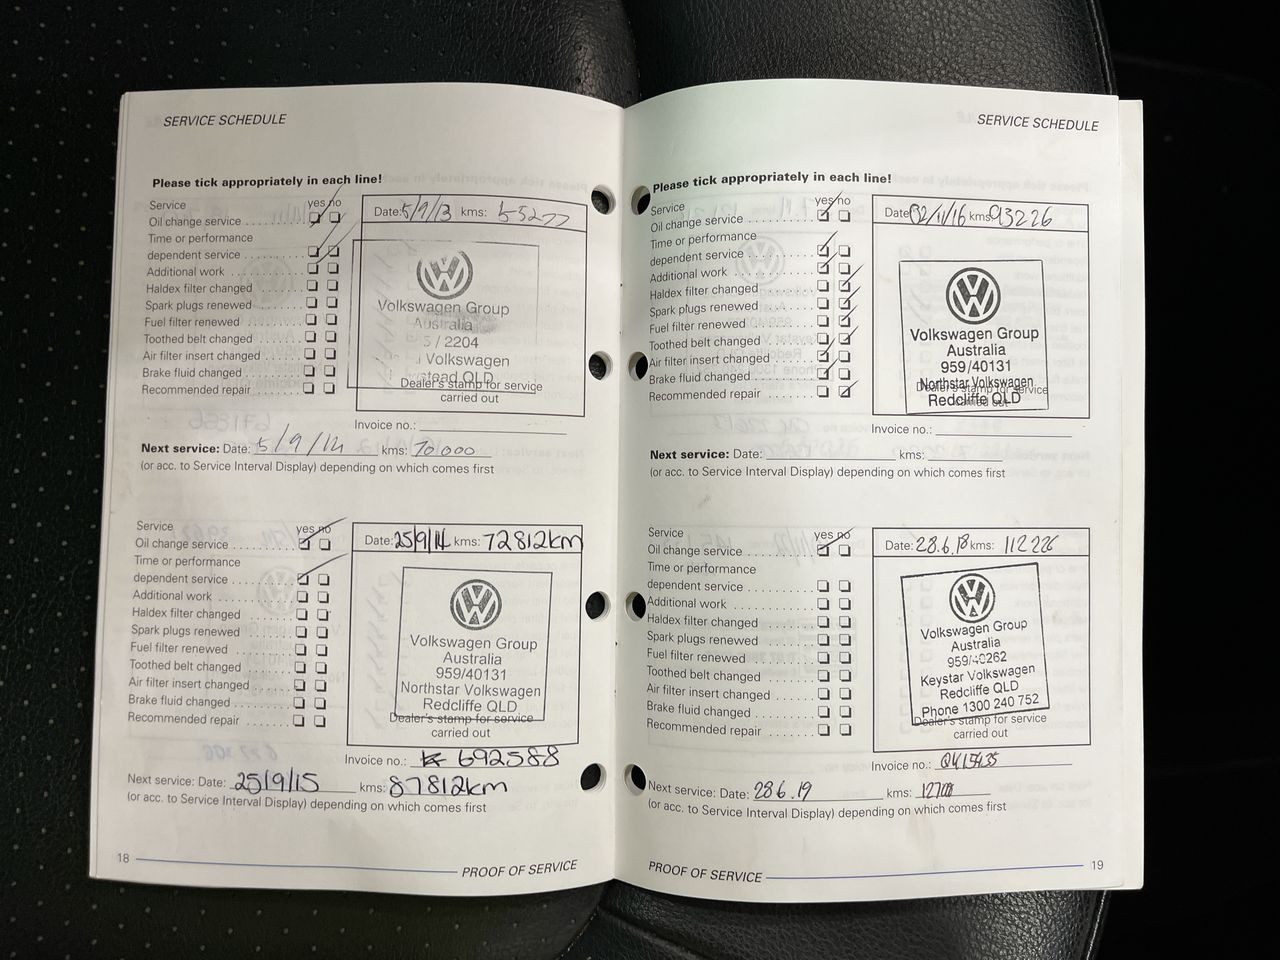 SERVICE SCHEDULE
Please tick appropriately in each line!
Service yes no
Oil change service
Time or performance
dependent service
Additional work
Haldex filter changed
Spark plugs renewed
Fuel filter renewed
Toothed belt changed
Air filter insert changed
Brake fluid changed
Recommended repair
Date: 5/9/13 kms: 55277
Volkswagen Group
Australia
/ 2204
Volkswagen
stead QLD
Dealer's stamp for service
carried out
Invoice no.:
Next service: Date: 5/9/14 kms: 70000
(or acc. to Service Interval Display) depending on which comes first
Service yes no
Oil change service
Time or performance
dependent service
Additional work
Haldex filter changed
Spark plugs renewed
Fuel filter renewed
Toothed belt changed
Air filter insert changed
Brake fluid changed
Recommended repair
Date: 25/9/14 kms: 72812km
Volkswagen Group
Australia
959/40131
Northstar Volkswagen
Redcliffe QLD
Dealer's stamp for service
carried out
Invoice no.: 692588
Next service: Date: 25/9/15 kms: 87812km
(or acc. to Service Interval Display) depending on which comes first
18 PROOF OF SERVICE
SERVICE SCHEDULE
Please tick appropriately in each line!
Service yes no
Oil change service
Time or performance
dependent service
Additional work
Haldex filter changed
Spark plugs renewed
Fuel filter renewed
Toothed belt changed
Air filter insert changed
Brake fluid changed
Recommended repair
Date: 02/11/16 kms: 93226
Volkswagen Group
Australia
959/40131
Northstar Volkswagen
Redcliffe QLD
Dealer's stamp for service
carried out
Invoice no.:
Next service: Date: kms:
(or acc. to Service Interval Display) depending on which comes first
Service yes no
Oil change service
Time or performance
dependent service
Additional work
Haldex filter changed
Spark plugs renewed
Fuel filter renewed
Toothed belt changed
Air filter insert changed
Brake fluid changed
Recommended repair
Date: 28.6.18 kms: 112226
Volkswagen Group
Australia
959/40262
Keystar Volkswagen
Redcliffe QLD
Phone 1300 240 752
Dealer's stamp for service
carried out
Invoice no.:
Next service: Date: 28.6.19 kms:
(or acc. to Service Interval Display) depending on which comes first
PROOF OF SERVICE 19